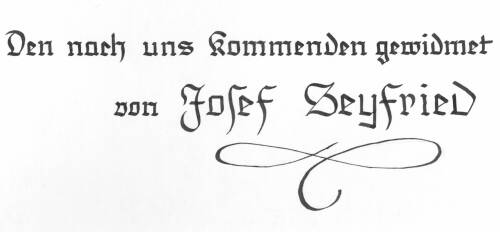 Den nach uns Kommenden gewidmet
von Josef Seyfried